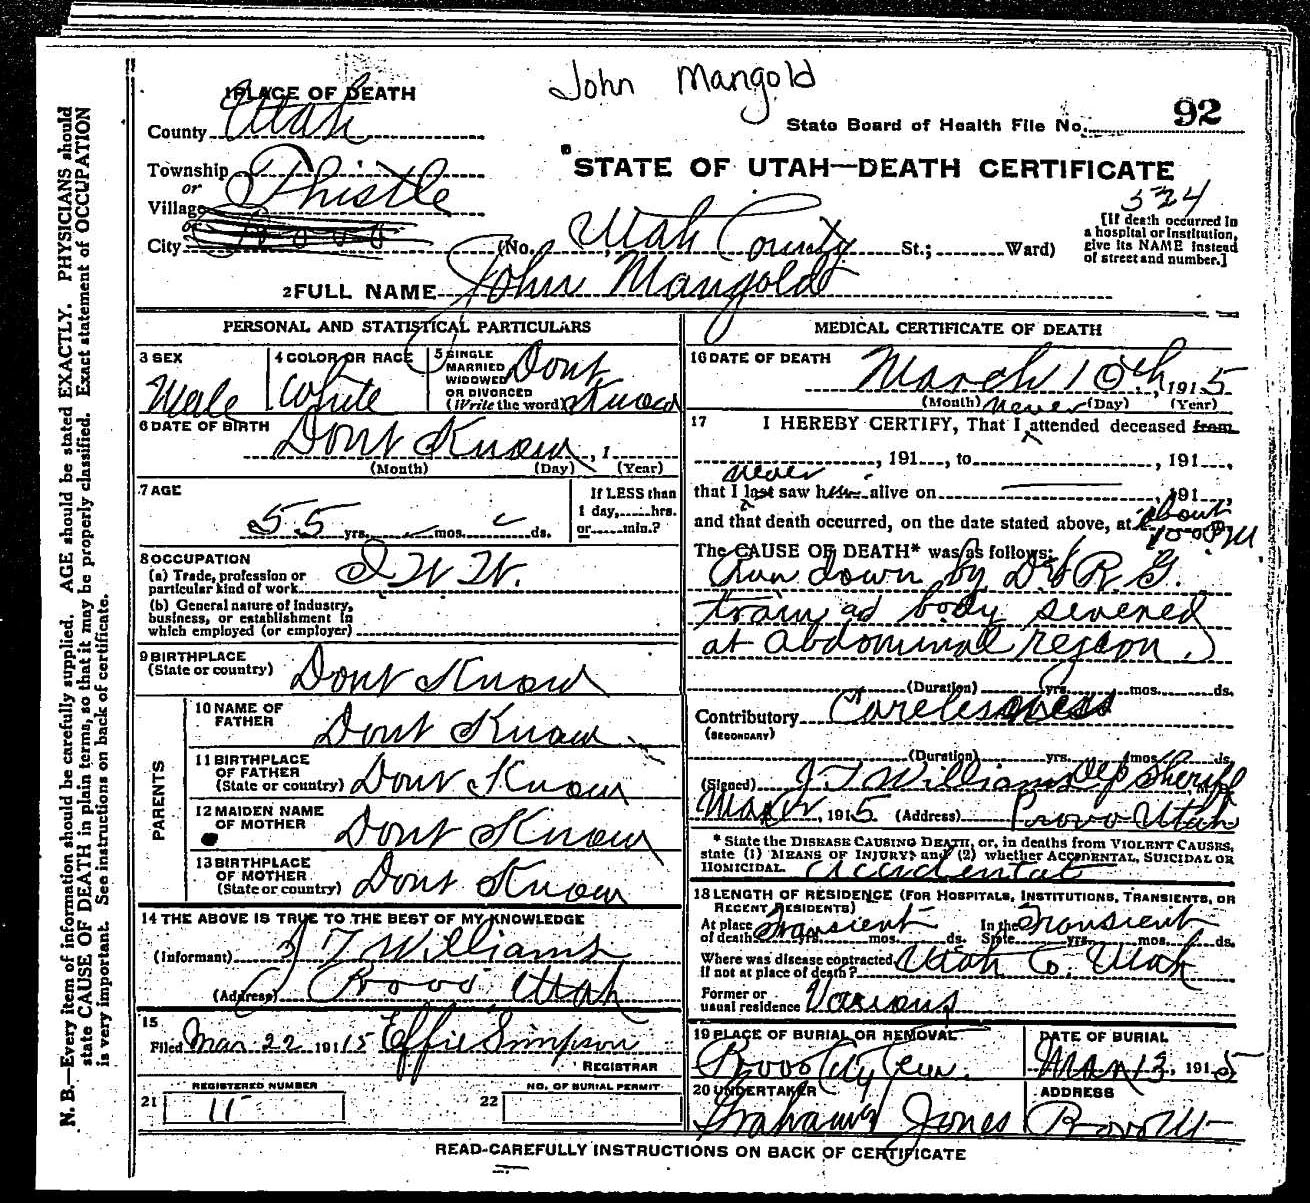 John Mangold
1 PLACE OF DEATH
County Utah
State Board of Health File No. 92
STATE OF UTAH—DEATH CERTIFICATE
Township
or
Village
or
City
Thistle
Provo
(No. Utah County St.; Ward)
524
[If death occurred in
a hospital or institution,
give its NAME instead
of street and number.]
2 FULL NAME John Mangold
PERSONAL AND STATISTICAL PARTICULARS
3 SEX
Male
4 COLOR OR RACE
White
5 SINGLE
MARRIED
WIDOWED
OR DIVORCED
(Write the word)
Dont
Know
6 DATE OF BIRTH
Dont Know, 1
(Month) (Day) (Year)
7 AGE
55 yrs. mos. ds.
If LESS than
1 day, hrs.
or min.?
8 OCCUPATION
(a) Trade, profession or
particular kind of work I W W.
(b) General nature of industry,
business, or establishment in
which employed (or employer)
9 BIRTHPLACE
(State or country) Dont Know
PARENTS
10 NAME OF
FATHER Dont Know
11 BIRTHPLACE
OF FATHER
(State or country) Dont Know
12 MAIDEN NAME
OF MOTHER Dont Know
13 BIRTHPLACE
OF MOTHER
(State or country) Dont Know
14 THE ABOVE IS TRUE TO THE BEST OF MY KNOWLEDGE
(Informant) J T Williams
(Address) Provo Utah
15
Filed Mar 22 1915 Effie Simpson
REGISTRAR
REGISTERED NUMBER
21 11
NO. OF BURIAL PERMIT
22
MEDICAL CERTIFICATE OF DEATH
16 DATE OF DEATH
March 10th, 1915
(Month) (Day) (Year)
never
17 I HEREBY CERTIFY, That I attended deceased from
, 191 , to , 191 ,
never
that I last saw h alive on , 191 ,
and that death occurred, on the date stated above, at about
M
The CAUSE OF DEATH* was as follows:
Run down by D & R. G.
train ad body severed
at abdominal region.
(Duration) yrs. mos. ds.
Contributory Carelessness
(SECONDARY)
(Duration) yrs. mos. ds.
(Signed) J T Williams Dep Sheriff
Mar 12, 1915 (Address) Provo Utah
* State the DISEASE CAUSING DEATH, or, in deaths from VIOLENT CAUSES,
state (1) MEANS OF INJURY; and (2) whether ACCIDENTAL, SUICIDAL OR
HOMICIDAL. Accidental
18 LENGTH OF RESIDENCE (FOR HOSPITALS, INSTITUTIONS, TRANSIENTS, OR
RECENT RESIDENTS)
At place
of death Transient yrs. mos. ds.
In the
State Transient yrs. mos. ds.
Where was disease contracted
If not at place of death? Utah Co. Utah
Former or
usual residence Various
19 PLACE OF BURIAL OR REMOVAL
Provo City Cem.
DATE OF BURIAL
Mar 13, 1915
20 UNDERTAKER
Jones
ADDRESS
Provo Ut
READ CAREFULLY INSTRUCTIONS ON BACK OF CERTIFICATE
N. B.—Every item of information should be carefully supplied. AGE should be stated EXACTLY. PHYSICIANS should
state CAUSE OF DEATH in plain terms, so that it may be properly classified. Exact statement of OCCUPATION
is very important. See instructions on back of certificate.